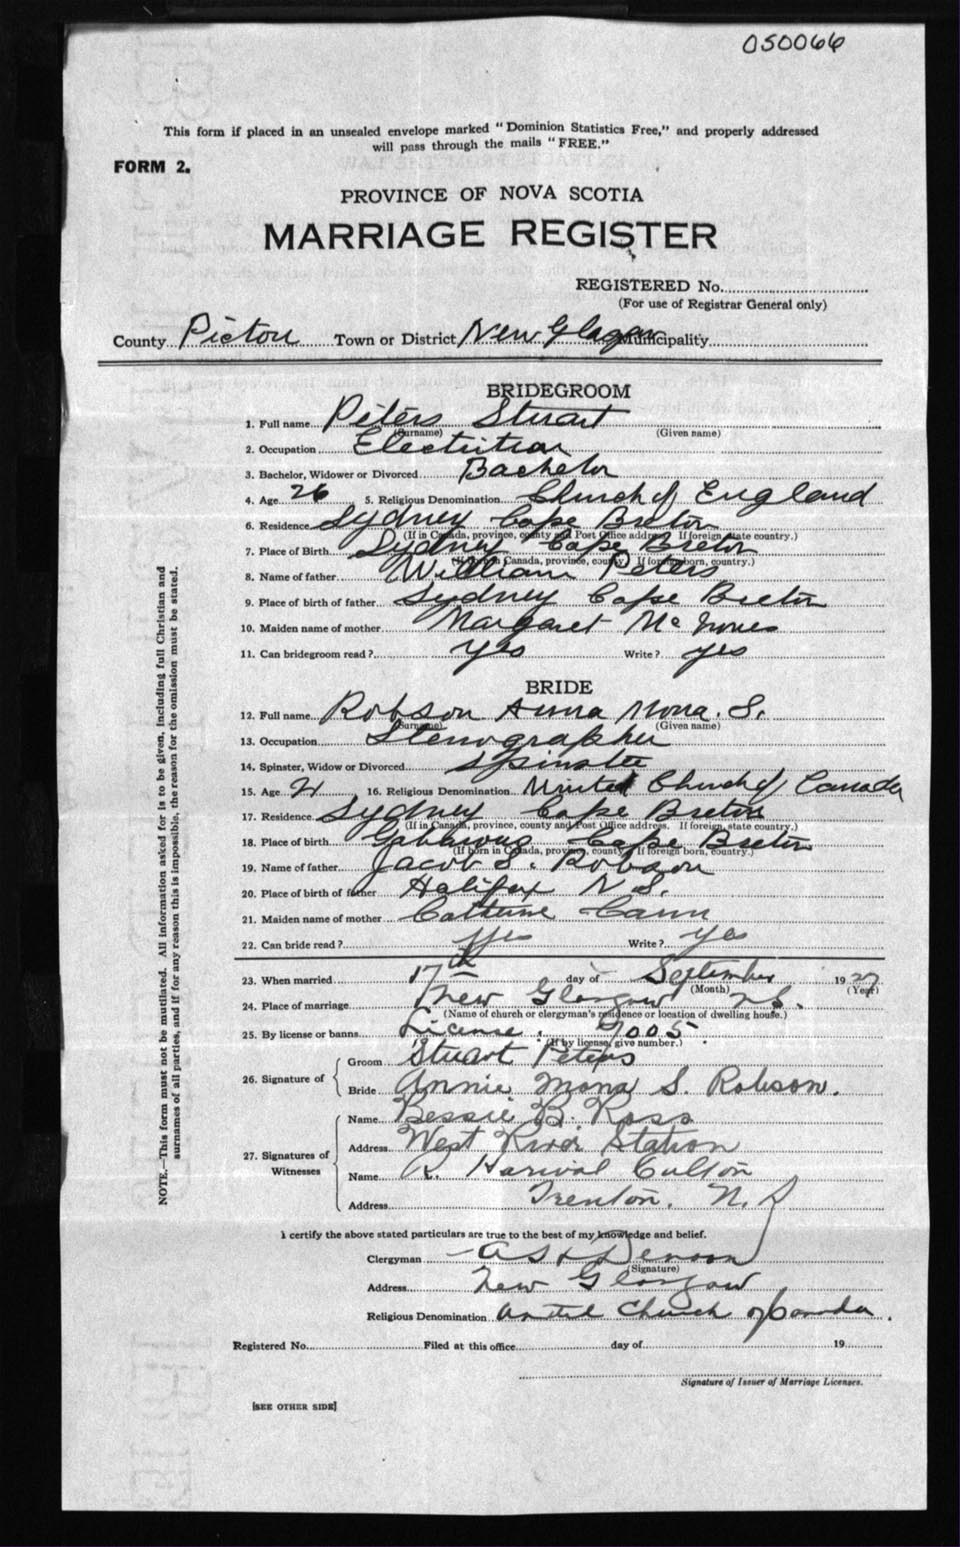 050066
This form if placed in an unsealed envelope marked "Dominion Statistics Free," and properly addressed
will pass through the mails "FREE."
FORM 2.
PROVINCE OF NOVA SCOTIA
MARRIAGE REGISTER
REGISTERED No.
(For use of Registrar General only)
County Pictou Town or District New Glasgow Municipality
BRIDEGROOM
1. Full name Peters Stuart
(Surname) (Given name)
2. Occupation Electrition
3. Bachelor, Widower or Divorced Bachelor
4. Age 26 5. Religious Denomination Church of England
6. Residence Sydney Cape Breton
(If in Canada, province, county and Post Office address. If foreign, state country.)
7. Place of Birth Sydney Cape Breton
(If born in Canada, province, county. If foreign born, country.)
8. Name of father William Peters
9. Place of birth of father Sydney Cape Breton
10. Maiden name of mother Margaret Mc
11. Can bridegroom read? yes Write? yes
BRIDE
12. Full name Robson Anna Mona. S.
(Surname) (Given name)
13. Occupation Stenographer
14. Spinster, Widow or Divorced Spinster
15. Age 21 16. Religious Denomination United Church of Canada
17. Residence Sydney Cape Breton
(If in Canada, province, county and Post Office address. If foreign, state country.)
18. Place of birth Gabarous Cape Breton
(If born in Canada, province, county. If foreign born, country.)
19. Name of father Jacob S. Robson
20. Place of birth of father Halifax N.S.
21. Maiden name of mother Catherine Cann
22. Can bride read? yes Write? yes
23. When married 17th day of September 1927
(Month) (Year)
24. Place of marriage New Glasgow N.S.
(Name of church or clergyman's residence or location of dwelling house.)
25. By license or banns License. 9005
(If by license, give number.)
26. Signature of
Groom Stuart Peters
Bride Annie Mona S. Robson.
27. Signatures of Witnesses
Name Bessie B. Ross
Address West River Station
Name R. Culton
Address Trenton, N.S
I certify the above stated particulars are true to the best of my knowledge and belief.
Clergyman
(Signature)
Address New Glasgow
Religious Denomination United Church of Canada.
Registered No. Filed at this office day of 19
Signature of Issuer of Marriage Licenses.
[SEE OTHER SIDE]
NOTE.—This form must not be mutilated. All information asked for is to be given, including full Christian and
surnames of all parties, and if for any reason this is impossible, the reason for the omission must be stated.